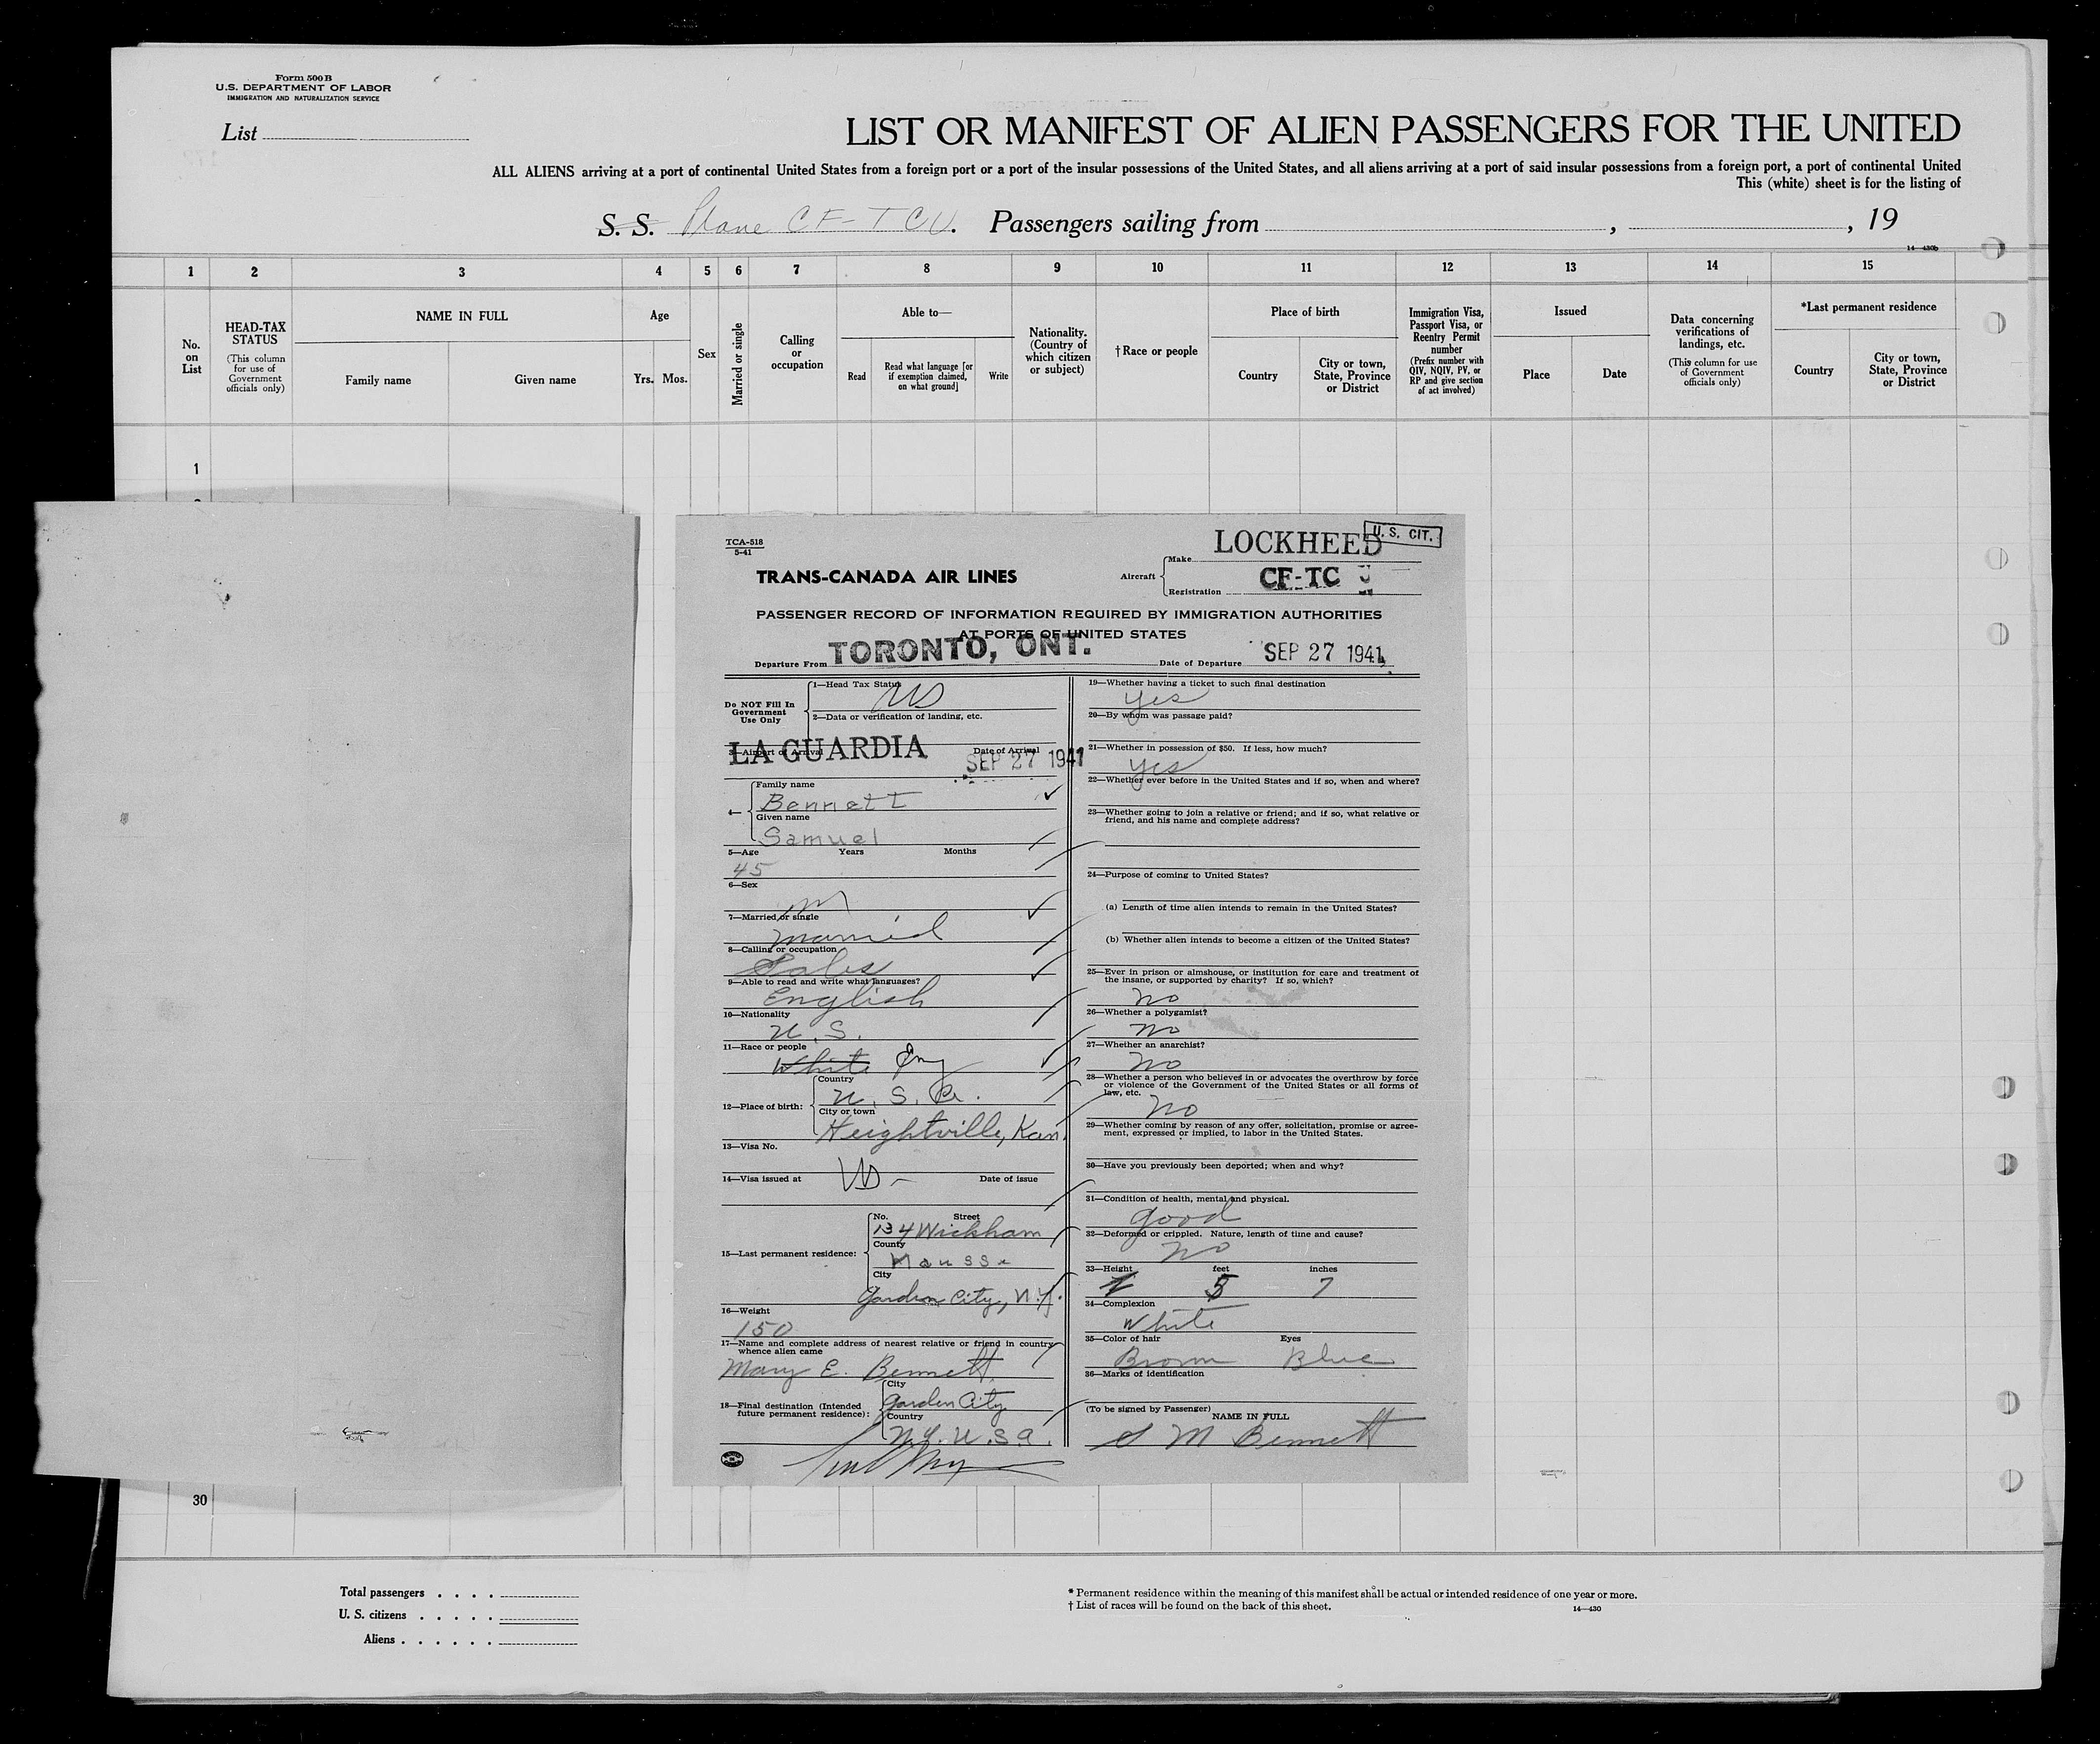 Form 500 B
U.S. DEPARTMENT OF LABOR
IMMIGRATION AND NATURALIZATION SERVICE
List
LIST OR MANIFEST OF ALIEN PASSENGERS FOR THE UNITED
ALL ALIENS arriving at a port of continental United States from a foreign port or a port of the insular possessions of the United States, and all aliens arriving at a port of said insular possessions from a foreign port, a port of continental United
This (white) sheet is for the listing of
S. S. Plane CF-TCU. Passengers sailing from , , 19
14—430b
1 2 3 4 5 6 7 8 9 10 11 12 13 14 15
No. on List
HEAD-TAX STATUS
(This column for use of Government officials only)
NAME IN FULL
Family name Given name
Age
Yrs. Mos.
Sex
Married or single
Calling or occupation
Able to—
Read
Read what language [or if exemption claimed, on what ground]
Write
Nationality. (Country of which citizen or subject)
†Race or people
Place of birth
Country
City or town, State, Province or District
Immigration Visa, Passport Visa, or Reentry Permit number
(Prefix number with QIV, NQIV, PV, or RP and give section of act involved)
Issued
Place Date
Data concerning verifications of landings, etc.
(This column for use of Government officials only)
*Last permanent residence
Country
City or town, State, Province or District
1
TCA-518
5-41
TRANS-CANADA AIR LINES
Aircraft
Make LOCKHEED
U. S. CIT.
Registration CF-TC
PASSENGER RECORD OF INFORMATION REQUIRED BY IMMIGRATION AUTHORITIES
AT PORTS OF UNITED STATES
Departure From TORONTO, ONT. Date of Departure SEP 27 1941
Do NOT Fill In Government Use Only
1—Head Tax Status
US
2—Data or verification of landing, etc.
3—Airport of Arrival Date of Arrival
LA GUARDIA SEP 27 1941
4—
Family name
Bennett
Given name
Samuel
5—Age Years Months
45
6—Sex
M
7—Married or single
Married
8—Calling or occupation
Sales
9—Able to read and write what languages?
English
10—Nationality
U.S.
11—Race or people
White Eng
12—Place of birth:
Country
U. S. A.
City or town
Heightville, Kan.
13—Visa No.
US -
14—Visa issued at Date of issue
15—Last permanent residence:
No. Street
134 Wickham
County
Naussa
City
Garden City, N.Y.
16—Weight
150
17—Name and complete address of nearest relative or friend in country whence alien came
Mary E. Bennett.
18—Final destination (Intended future permanent residence):
City
Garden City
Country
N.Y. U.S.A.
19—Whether having a ticket to such final destination
Yes
20—By whom was passage paid?
21—Whether in possession of $50. If less, how much?
Yes
22—Whether ever before in the United States and if so, when and where?
23—Whether going to join a relative or friend; and if so, what relative or friend, and his name and complete address?
24—Purpose of coming to United States?
(a) Length of time alien intends to remain in the United States?
(b) Whether alien intends to become a citizen of the United States?
25—Ever in prison or almshouse, or institution for care and treatment of the insane, or supported by charity? If so, which?
No
26—Whether a polygamist?
No
27—Whether an anarchist?
No
28—Whether a person who believes in or advocates the overthrow by force or violence of the Government of the United States or all forms of law, etc.
No
29—Whether coming by reason of any offer, solicitation, promise or agreement, expressed or implied, to labor in the United States.
30—Have you previously been deported; when and why?
31—Condition of health, mental and physical.
Good
32—Deformed or crippled. Nature, length of time and cause?
No
33—Height feet inches
5 7
34—Complexion
White
35—Color of hair Eyes
Brown Blue
36—Marks of identification
(To be signed by Passenger)
NAME IN FULL
S M Bennett
30
Total passengers
U. S. citizens
Aliens
* Permanent residence within the meaning of this manifest shall be actual or intended residence of one year or more.
† List of races will be found on the back of this sheet.
14—430